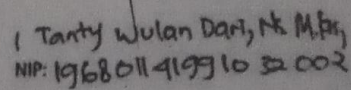 ( Tanty Wulan Dari, Ns M.Kes)
NIP: 19680114 199103 2 002